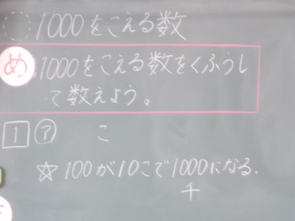 1000をこえる数
め 1000をこえる数をくふうし
て数えよう。
1 ア こ
☆ 100が10こで1000になる.
千